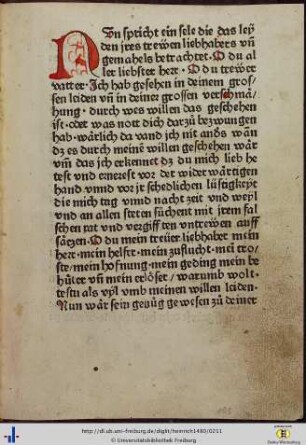 Nun spricht ein sele die das ley
den jres treẅen liebhabers vn̄
gemahels betrachtet · O du al
ler liebster herr · O du treẅer
vatter · Ich hab gesehen in deinem gros⸗
sen leiden vn̄ in deiner grossen verschmä⸗
hung · durch wes willen das geschehen
ist · oder was nott dich dar zů bezwungen
hab · wärlich da vand ich nit anders wān
dz es durch meine willen geschehen wär
vn̄ das ich erkennet dz du mich lieb he
test vnd enerest vor der wider wärtigen
hand vnnd vor jr schedlichen lüstigkeyt
die mich tag vnnd nacht zeit vnd weyl
vnd an allen steten süchent mit jrem fal
schen rat vnd vergifften vntreẅen auff
säczen · O du mein treüer liebhaber mein
herr · mein helffer · mein zuflucht · mei tro⸗
ste / mein hofnung · mein geding mein be
hüter vn̄ mein erlöser / warumb wolt⸗
testu als vyl vmb meinen willen leiden ·
Nun wär sein genůg gewesen zů deiner
http://dl.ub.uni-freiburg.de/diglit/heinrich1480/0211
© Universitätsbibliothek Freiburg